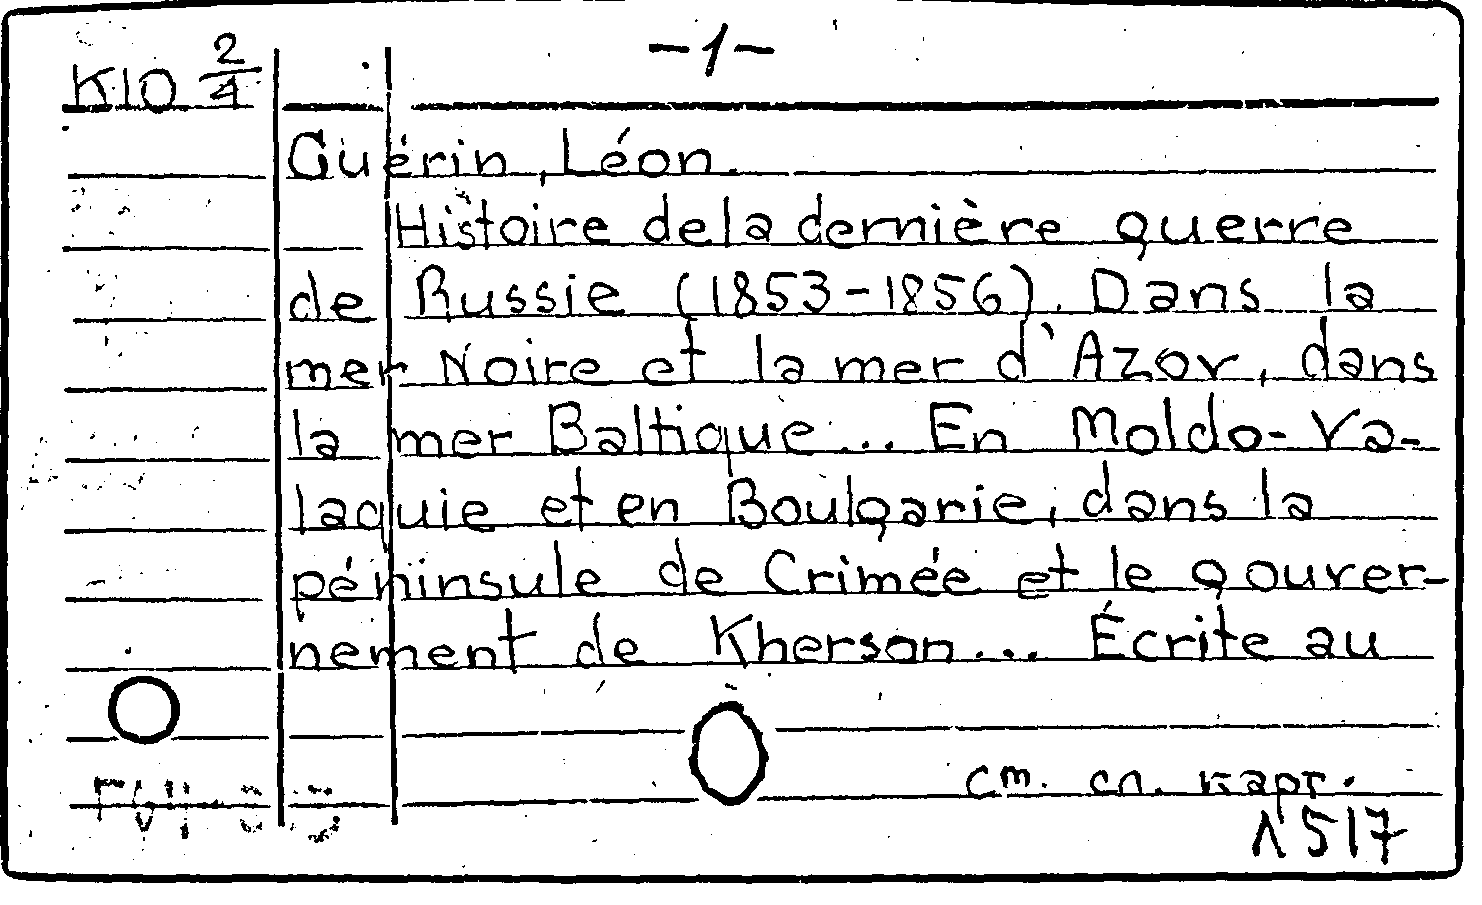 -1-
К10 2/4
Guérin, Léon.
Histoire de la dernière guerre
de Russie (1853-1856). Dans la
mer Noire et la mer d'Azov, dans
la mer Baltique... En Moldo-Va-
laquie et en Boulgarie, dans la
péninsule de Crimée et le gouver-
nement de Kherson... Écrite au
см. сл. карт.
Л517